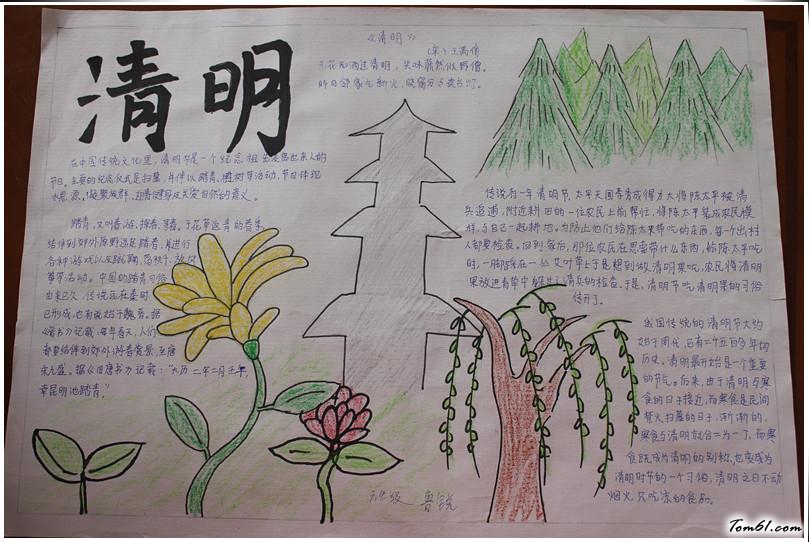 清明
《清明》
(宋) 王禹偁
无花无酒过清明，兴味萧然似野僧。
昨日邻家乞新火，晓窗分与读书灯。
在中国传统文化里，清明节是一个纪念祖先及离世亲人的
节日。主要的纪念仪式是扫墓，并伴以踏青、植树等活动，节日体现
踏青，又叫春游、探春、寻春。
结伴到郊外原野远足踏青，并进行
筝等活动。中国的踏青习俗
由来已久，传说远在秦时
已形成，也有说始于魏晋。据
《晋书》记载：每年春天，人们
都要结伴到郊外游春赏景，至唐
宋尤盛。据《旧唐书》记载："大历二年二月壬午，
幸昆明池踏青。"
传说有一年清明节，太平天国李秀成得力大将陈太平被清
兵追逼，附近耕田的一位农民上前帮忙，将陈太平装成农民模
样，与自己一起耕地。为防止他们给陈太平带吃的东西，每个出村
人都要检查。回到家后，那位农民在思索带什么东西给陈太平吃
时，一脚踩在一丛艾草上，于是想到做清明果吃，农民将清明
果放进青草中躲过了清兵的检查。于是，清明节吃清明果的习俗
传开了。
我国传统的清明节大约
始于周代，已有二千五百多年的
历史。清明最开始是一个重要
的节气。后来，由于清明与寒
食的日子接近，而寒食是民间
禁火扫墓的日子，渐渐的，
寒食与清明就合二为一了，而寒
食既成为清明的别称，也变成为
清明时节的一个习俗，清明之日不动
烟火，只吃凉的食品。
六年级 鲁锐
Tom61.com